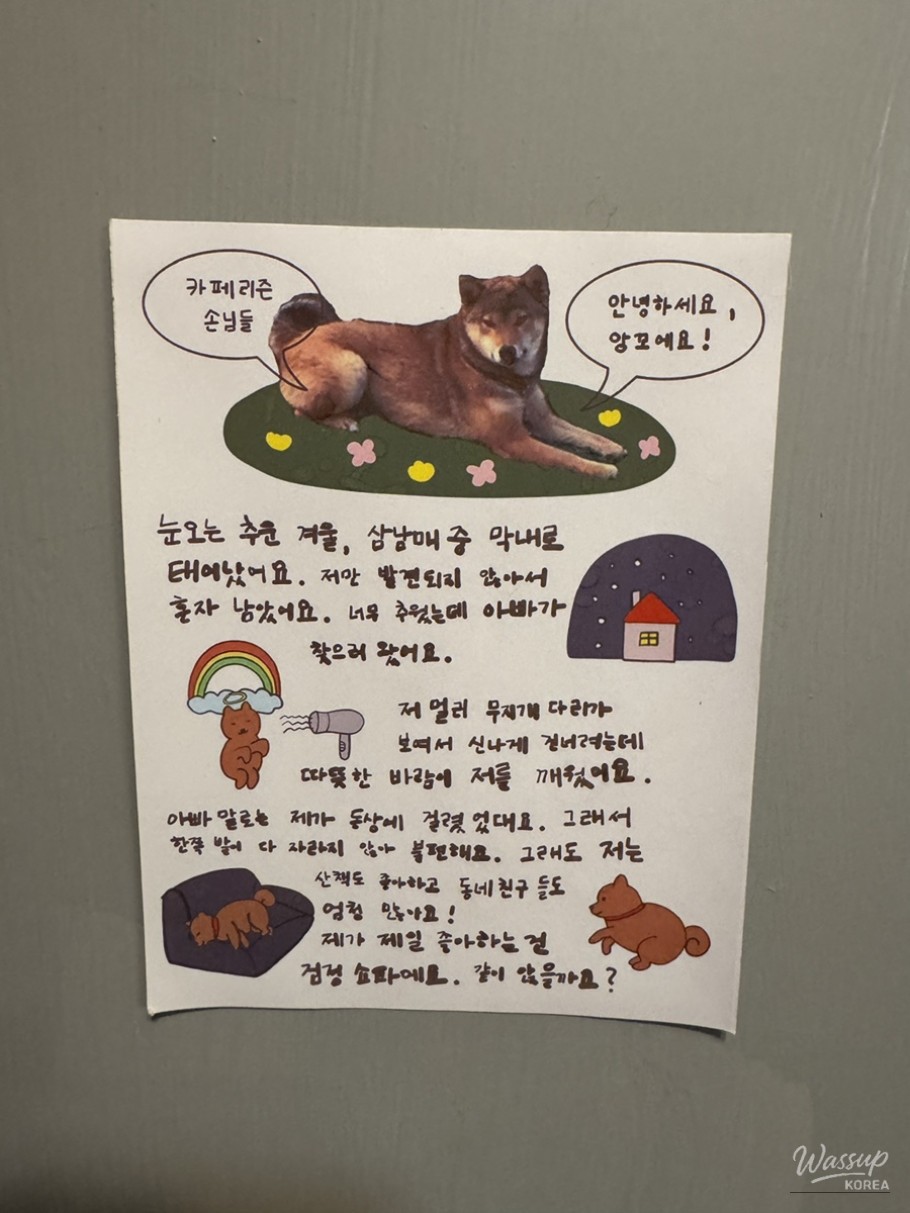 카페리즌
손님들
안녕하세요,
앙꼬예요!
눈오는 추운 겨울, 삼남매 중 막내로
태어났어요. 저만 발견되지 않아서
혼자 남았어요. 너무 추웠는데 아빠가
찾으러 왔어요.
저 멀리 무지개 다리가
보여서 신나게 건너려는데
따뜻한 바람이 저를 깨웠어요.
아빠 말로는 제가 동상에 걸렸었대요. 그래서
한쪽 발이 다 자라지 않아 불편해요. 그래도 저는
산책도 좋아하고 동네친구들도
엄청 많아요!
제가 제일 좋아하는 건
검정 소파예요. 같이 앉을까요?
Wassup
KOREA